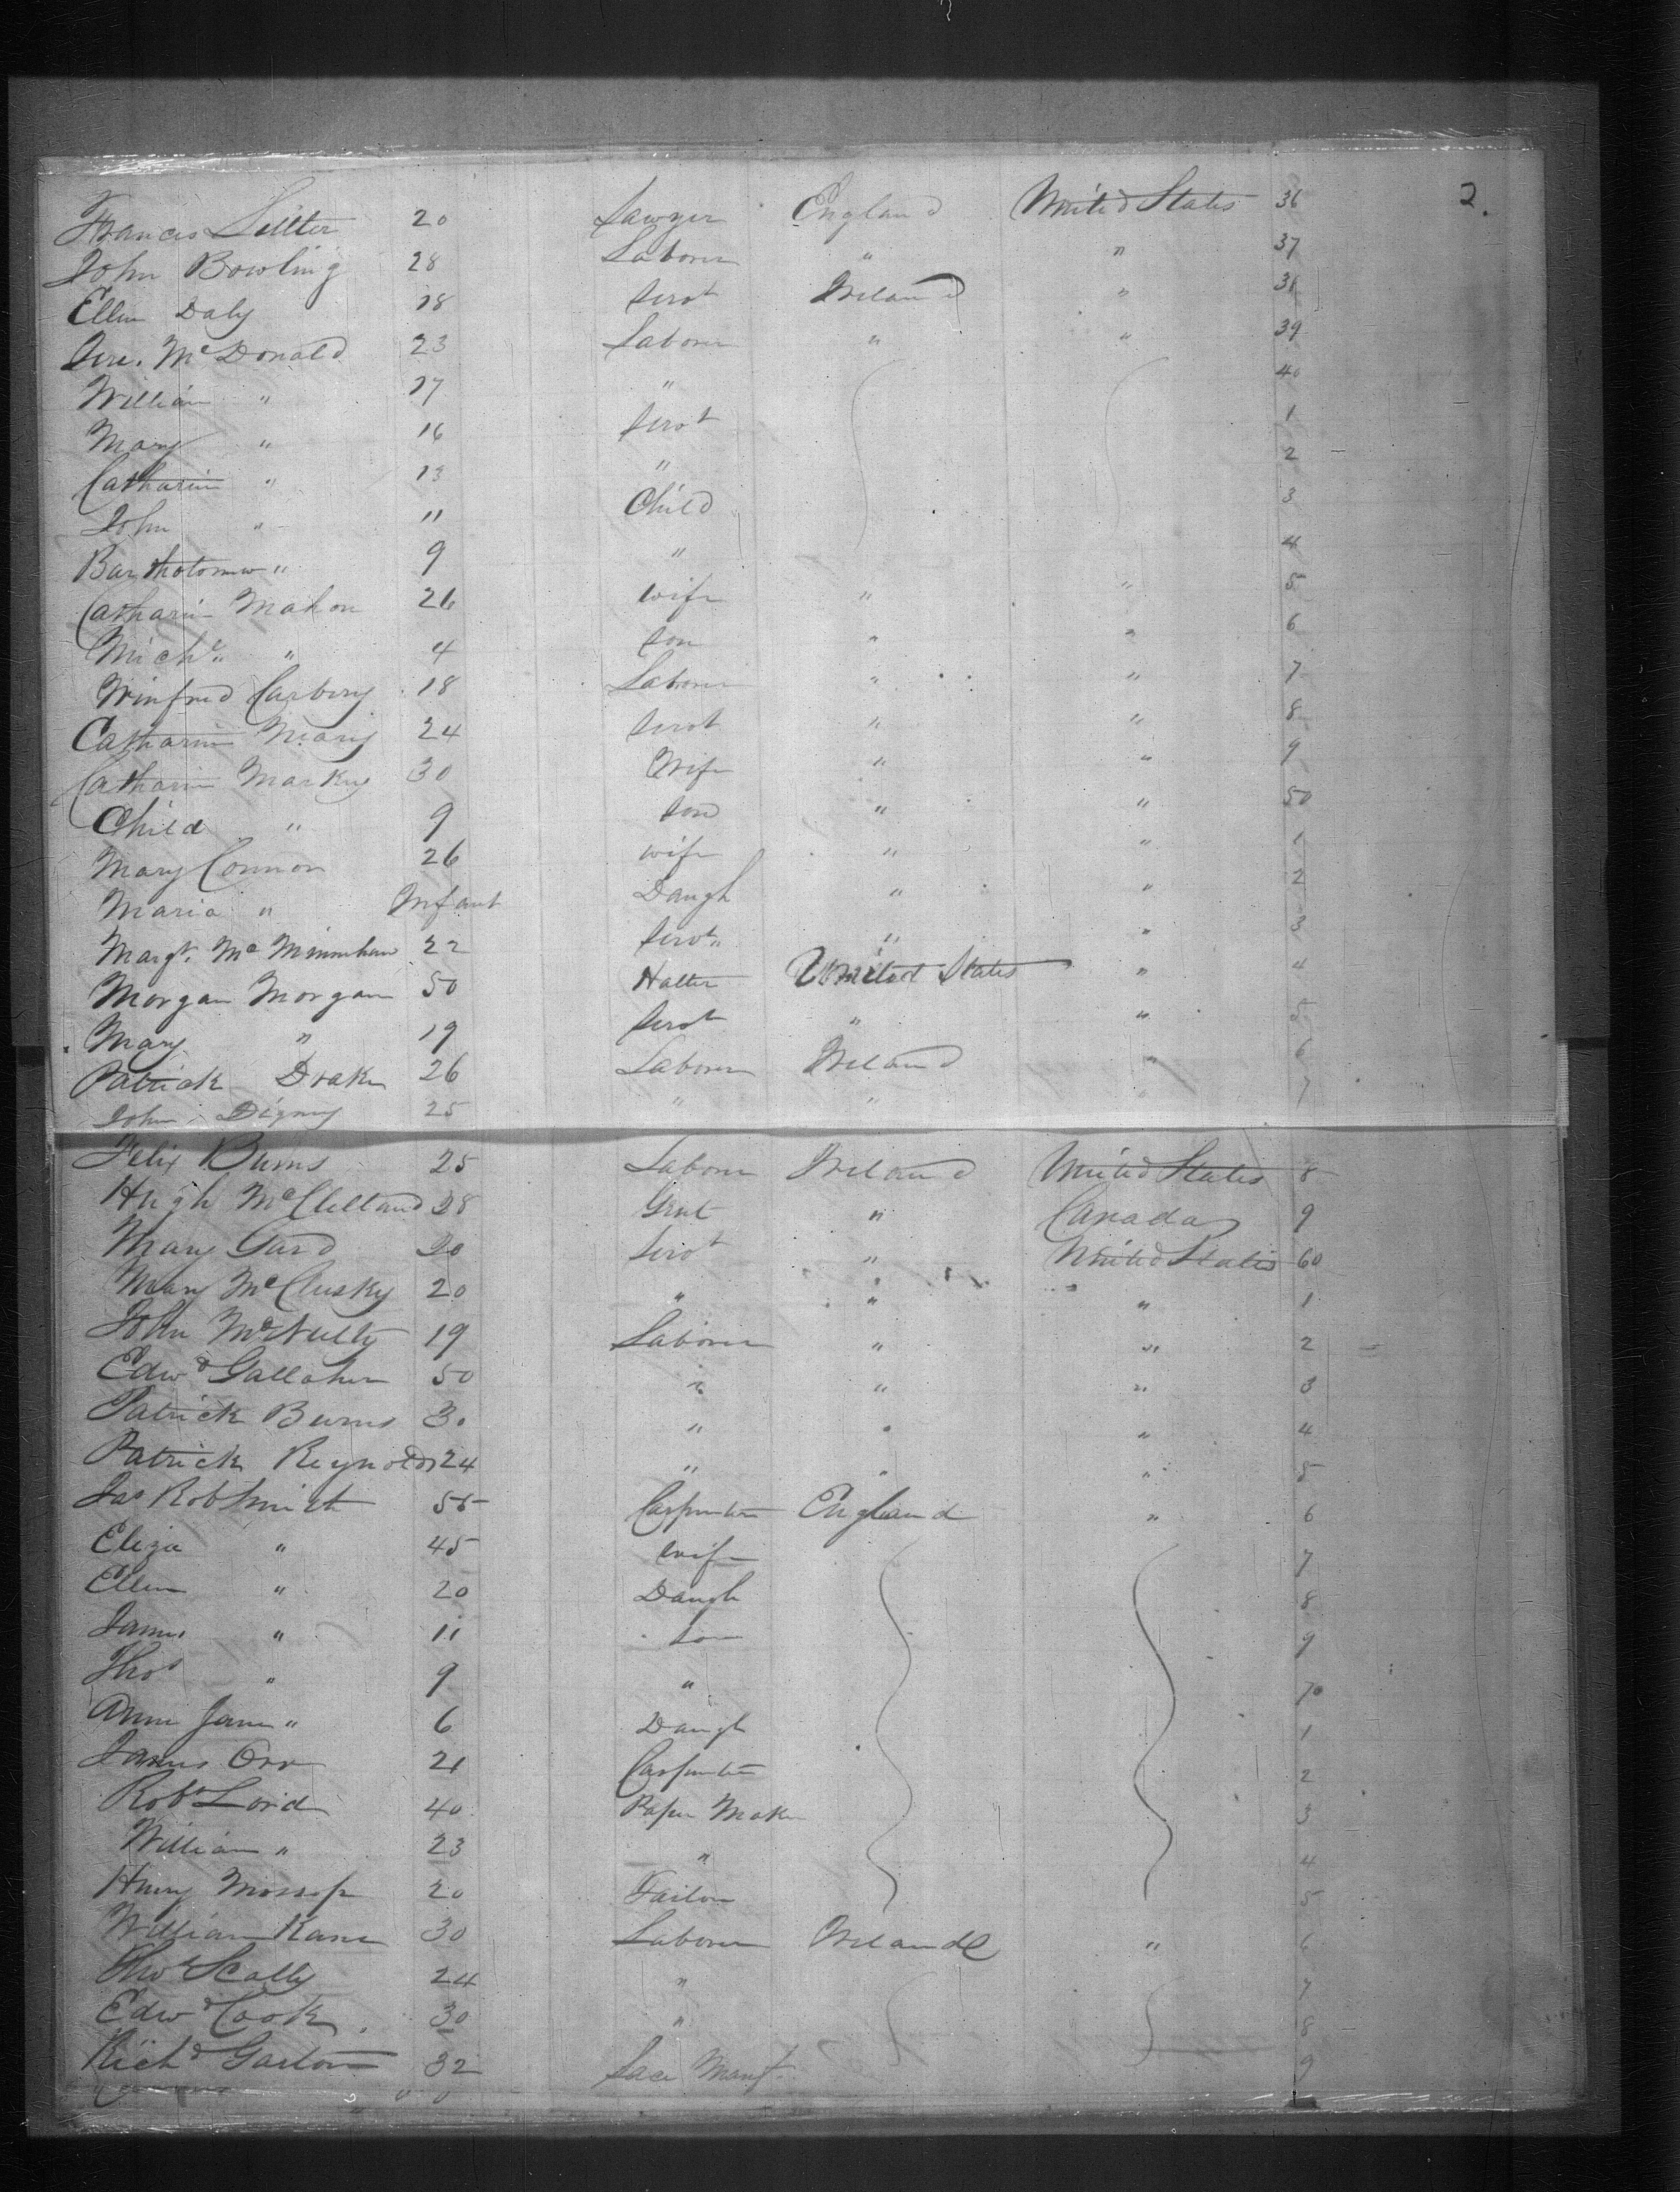 2.
Francis Sillter 20 Sawyer England United States 36
John Bowling 28 Laborer " " 37
Ellen Daly 18 Servt Ireland " 38
Jere. McDonald 23 Laborer " " 39
William " 17 " 40
Mary " 16 Servt 1
Catharine " 13 " 2
John " 11 Child 3
Bartholomew " 9 " 4
Catharin Mahon 26 wife " " 5
Michl " 4 son " " 6
Winfred Carbery 18 Laborer " " 7
Catharine Mary 24 Servt " " 8
Catharin Markey 30 Wife " " 9
Child " 9 son " " 50
Mary Connor 26 wife " " 1
Maria " Infant Daugh " " 2
Margt. Mc 22 Servt " " 3
Morgan Morgan 50 Hatter United States " 4
Mary " 19 Servt " " 5
Patrick Drake 26 Laborer Ireland " 6
John Digney 25 " " " 7
Felix Burns 25 Laborer Ireland United States 8
Hugh McClelland 28 Gent " Canada 9
Mary Gard 20 Servt " United States 60
Mary McClusky 20 " " " 1
John McNulty 19 Laborer " " 2
Edwd Gallaher 50 " " " 3
Patrick Burns 30 " " " 4
Patrick Reynolds 24 " " " 5
Jas Robt Smith 55 Carpenter England " 6
Eliza " 45 wife 7
Ellen " 20 Daugh 8
James " 11 son 9
Thos " 9 " 70
Anne Jane " 6 Daugh 1
James Orr 21 Carpenter 2
Robt Lord 40 Paper Maker 3
William " 23 " 4
Henry Mossop 20 Tailor 5
William Kane 30 Laborer Ireland " 6
Thos Scally 24 " 7
Edwd Cook 30 " 8
Richd Garton 32 Lace Manf. 9